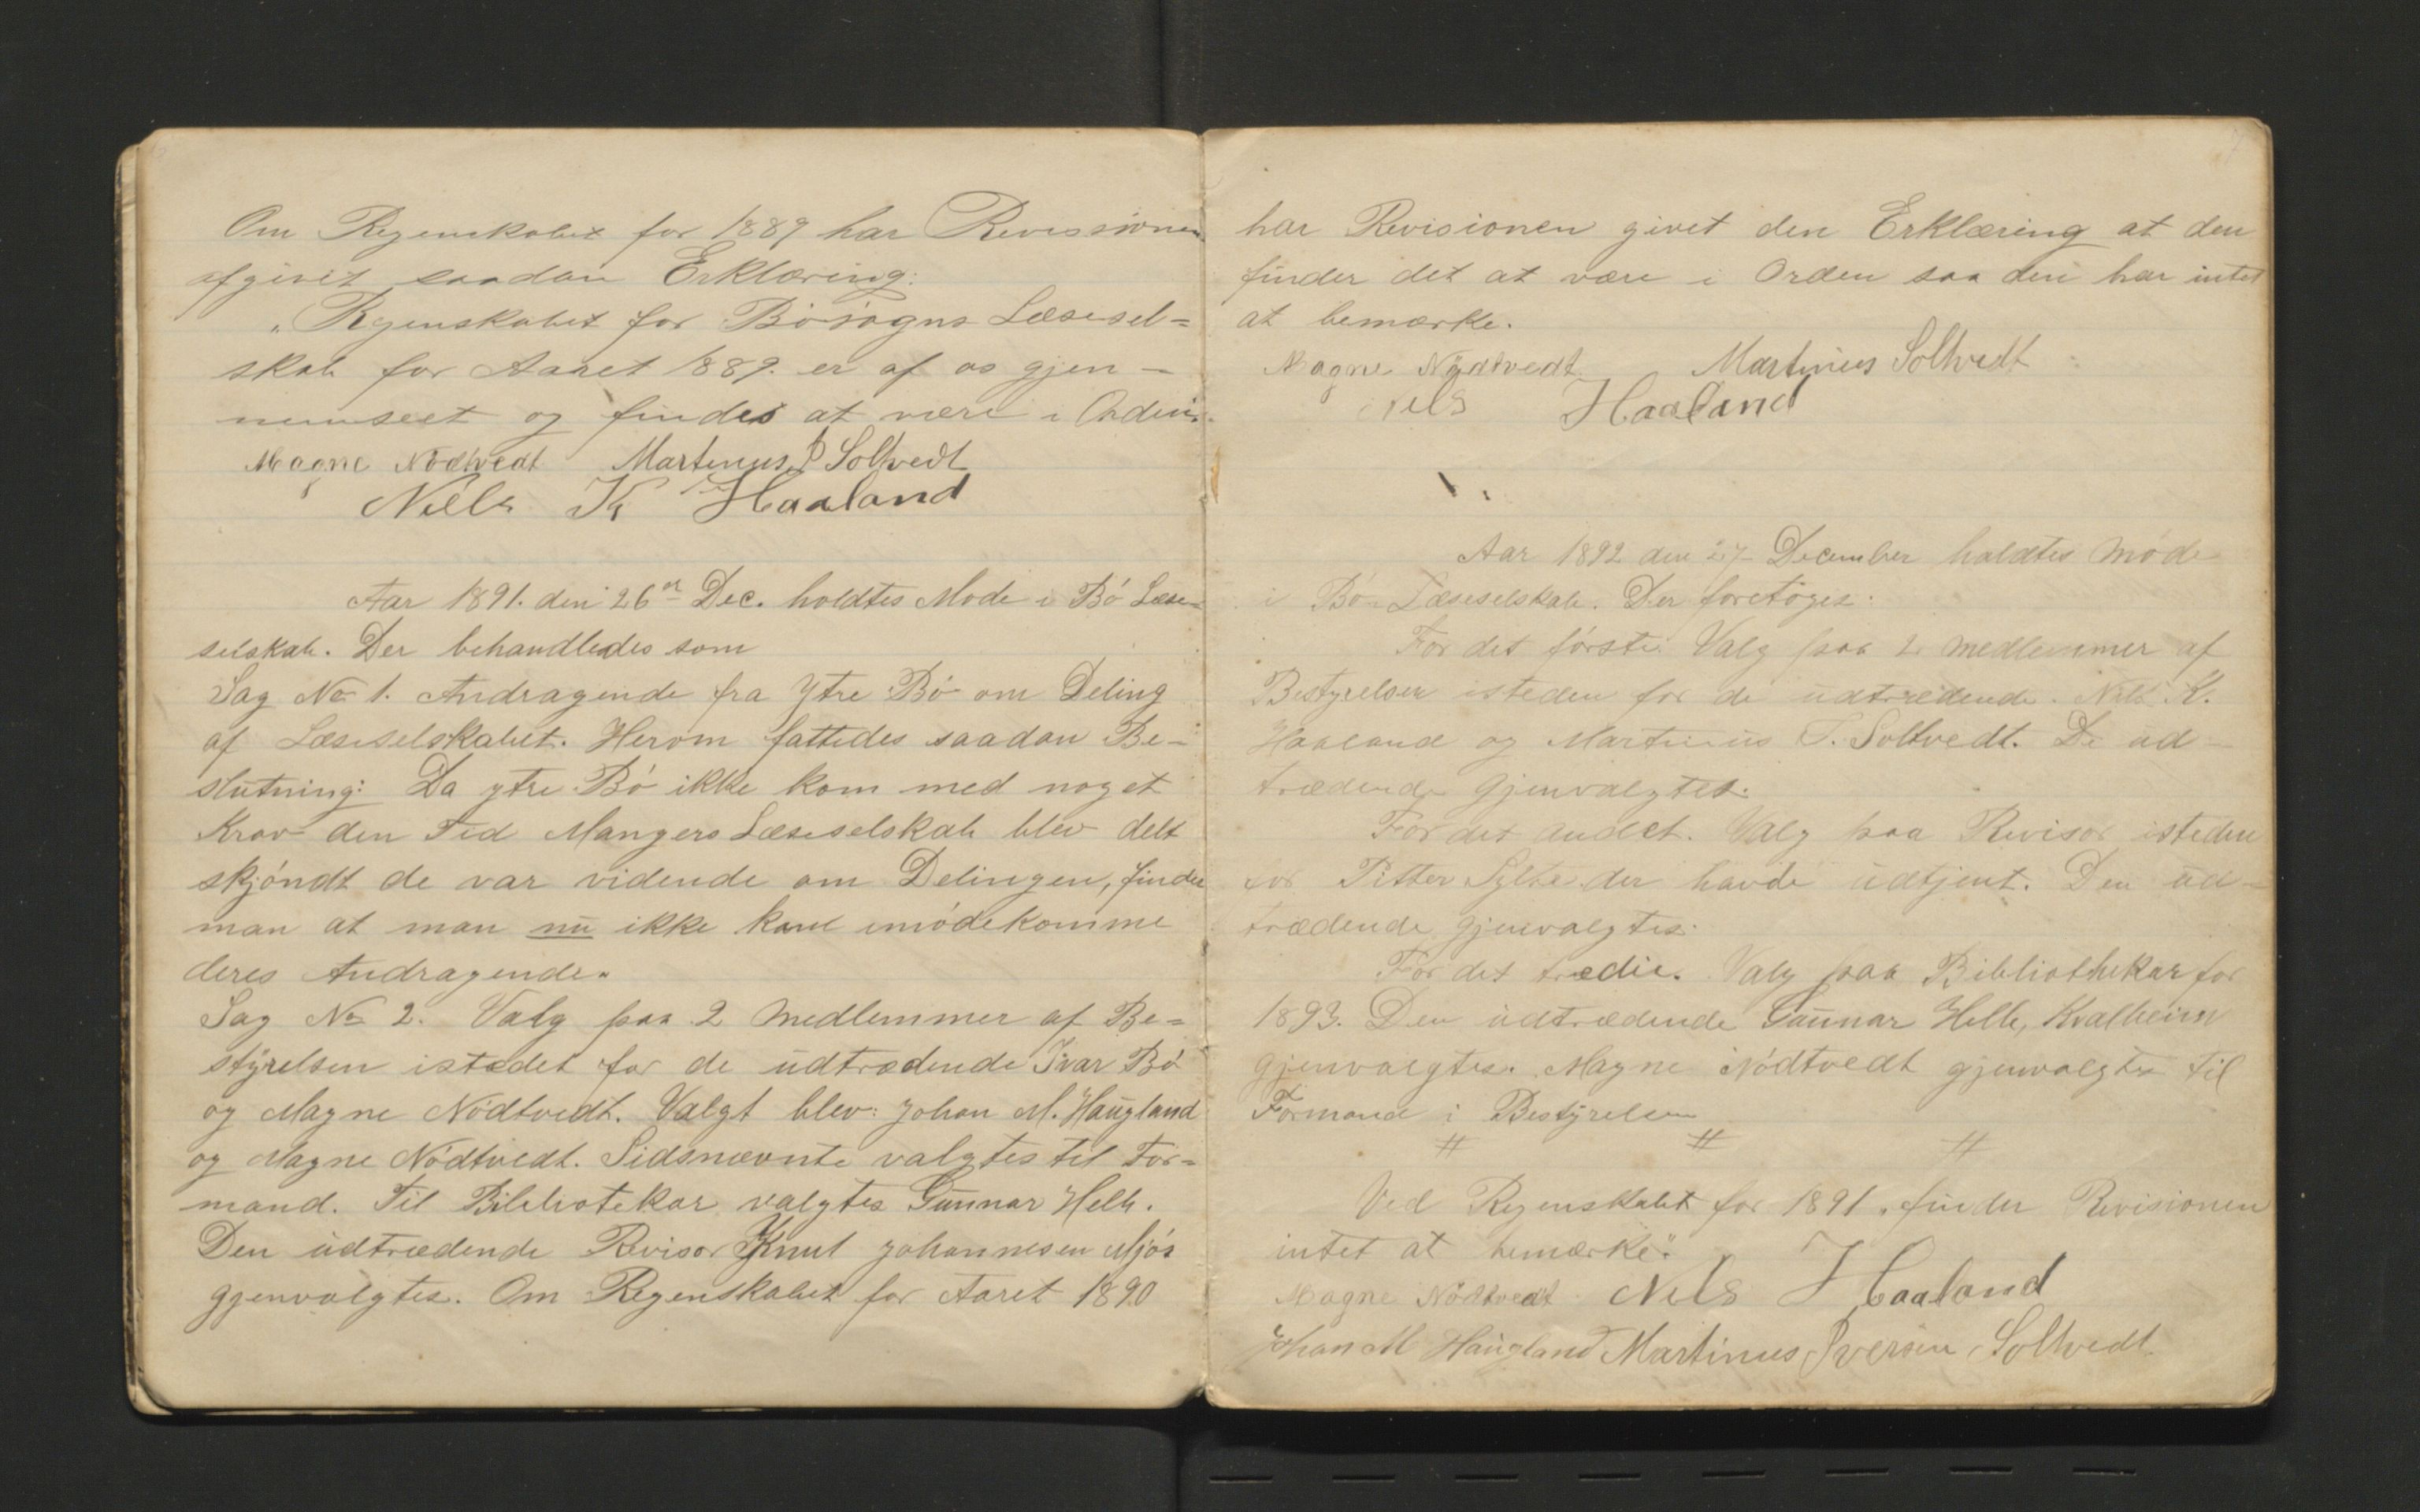 Om Regnskabet for 1889 har Revisionen
afgivet saadan Erklæring:
„Regnskabet for Bösogns Læsesel=
skab for Aaret 1889. er af os gjen-
nemseet og findes at være i Orden.
Magne Nödtvedt Martinus I Soltvedt
Nells K Haaland
Aar 1891. den 26de Dec. holdtes Möde i Bö Læse-
selskab. Der behandledes som
Sag No 1. Andragende fra Ytre Bö om Deling
af Læseselskabet. Herom fattedes saadan Be-
slutning: Da ytre Bö ikke kom med noget
Krav den Tid Mangers Læseselskab blev delt
skjöndt de var vidende om Delingen, finder
man at man nu ikke kan imödekomme
deres Andragende.
Sag No 2. Valg paa 2 Medlemmer af Be=
styrelsen istedet for de udtrædende Ivar Bö
og Magne Nödtvedt. Valgt blev: Johan M. Haugland
og Magne Nödtvedt. Sidsnævnte valgtes til For=
mand. Til Bibliotekar valgtes Gunnar Helle.
Den udtrædende Revisor Knut Johannesen Mjös
gjenvalgtes. Om Regenskabet for Aaret 1890
har Revisionen givet den Erklæring at den
finder det at være i Orden saa den har intet
at bemærke.
Magne Nödtvedt Martinus Soltvedt
Nels Haaland
Aar 1892 den 27 December holdtes Möde
i Bö Læseselskab. Der foretoges:
For det förste: Valg paa 2 Medlemmer af
Bestyrelsen isteden for de udtrædende. Nels K.
Haaland og Martinus I. Soltvedt. De ud-
trædende gjenvalgtes.
For det andet. Valg paa Revisor isteden
for Pitter Sylte der havde udtjent. Den ud-
trædende gjenvalgtes.
For det trædie. Valg paa Bibliothekar for
1893. Den udtrædende Gunnar Helle, Kvalheim
gjenvalgtes. Magne Nödtvedt gjenvalgtes til
Formand i Bestyrelsen
# # #
Ved Regenskabet for 1891 „finder Revisionen
intet at bemærke".
Magne Nödtvedt Nels Haaland
Johan M Haugland Martinus Iversen Soltvedt